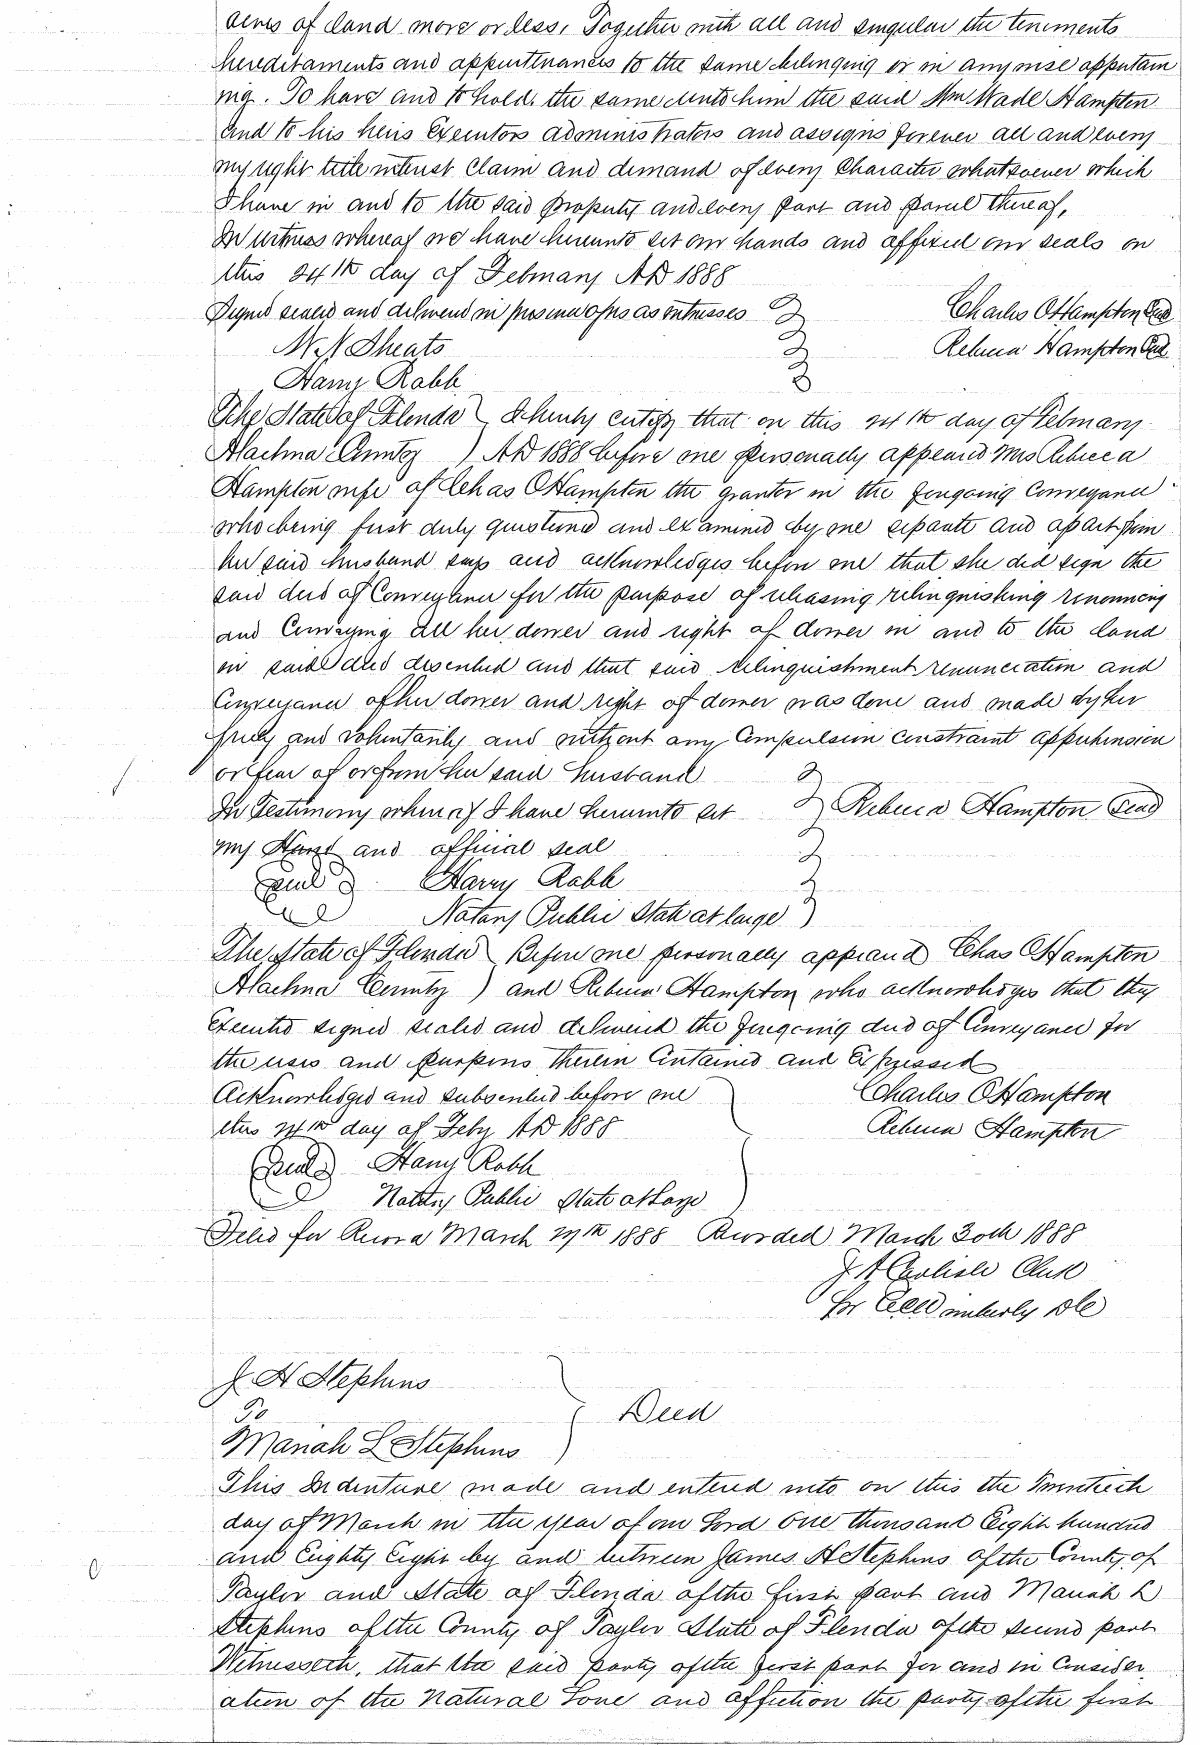 acres of land more or less, Together with all and singular the teniments
hereditaments and appurtenances to the same belonging or in anywise appertain
ing. To have and to hold the same unto him the said Wm Wade Hampton
and to his heirs Executors administrators and assigns forever all and every
my right title interest Claim and demand of every Character whatsoever which
I have in and to the said property and every part and parcel thereof,
In witness whereof we have hereunto set our hands and affixed our seals on
this 24th day of February AD 1888
Signed sealed and delivered in presence of us as witnesses
Charles O Hampton Seal
N N Sheats
Rebecca Hampton Seal
Harry Rabb
The State of Florida I hereby certify that on this 24th day of February
Alachua County ) AD 1888 before me personally appeared Mrs Rebecca
Hampton wife of Chas O Hampton the grantor in the foregoing Conveyance
who being first duly questioned and examined by me separate and apart from
her said husband says and acknowledges before me that she did sign the
said deed of Conveyance for the purpose of releasing relinquishing renouncing
and Conveying all her dower and right of dower in and to the land
in said deed described and that said relinquishment renunciation and
Conveyance of her dower and right of dower was done and made by her
freely and voluntarily and without any Compulsion constraint apprehension
or fear of or from her said husband
In Testimony whereof I have hereunto set
Rebecca Hampton Seal
my Hand and official seal
Seal Harry Rabb
Notary Public State at large )
The State of Florida Before me personally appeared Chas O Hampton
Alachua County ) and Rebecca Hampton who acknowledges that they
Executed signed sealed and delivered the foregoing deed of Conveyance for
the uses and purposes therein Contained and Expressed
Acknowledged and subscribed before me
Charles O Hampton
this 24th day of Feby AD 1888
Rebecca Hampton
Seal Harry Rabb
Notary Public State at Large
Filed for Record March 29th 1888 Recorded March 30th 1888
J A Carlisle Clerk
for Wimberly DC
J. H Stephens
To
Deed
Mariah L Stephens
This Indenture made and entered into on this the Twentieth
day of March in the year of our Lord One thousand Eight hundred
and Eighty Eight by and between James H Stephens of the County of
Taylor and State of Florida of the first part and Mariah L
Stephens of the County of Taylor State of Florida of the second part
Witnesseth, that the said party of the first part for and in Consider
ation of the Natural Love and affection the party of the first